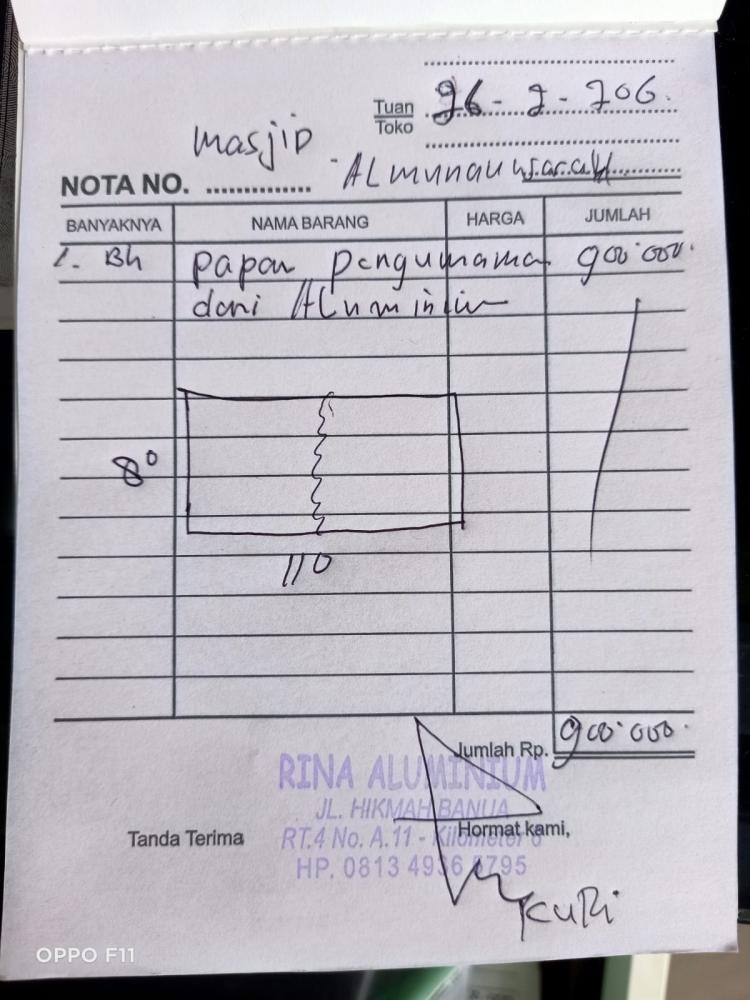 Tuan
Toko
26 - 2 - 206.
masjid
NOTA NO. ............... ALmunauwarah
BANYAKNYA NAMA BARANG HARGA JUMLAH
1. Bh papan pengumaman 900.000.
dari ALuminium
80
110
Jumlah Rp. 900.000.
RINA ALUMINIUM
JL. HIKMAH BANUA
Tanda Terima Hormat kami,
RT.4 No. A.11 - Kilometer 6
HP. 0813 4936 5795
OPPO F11